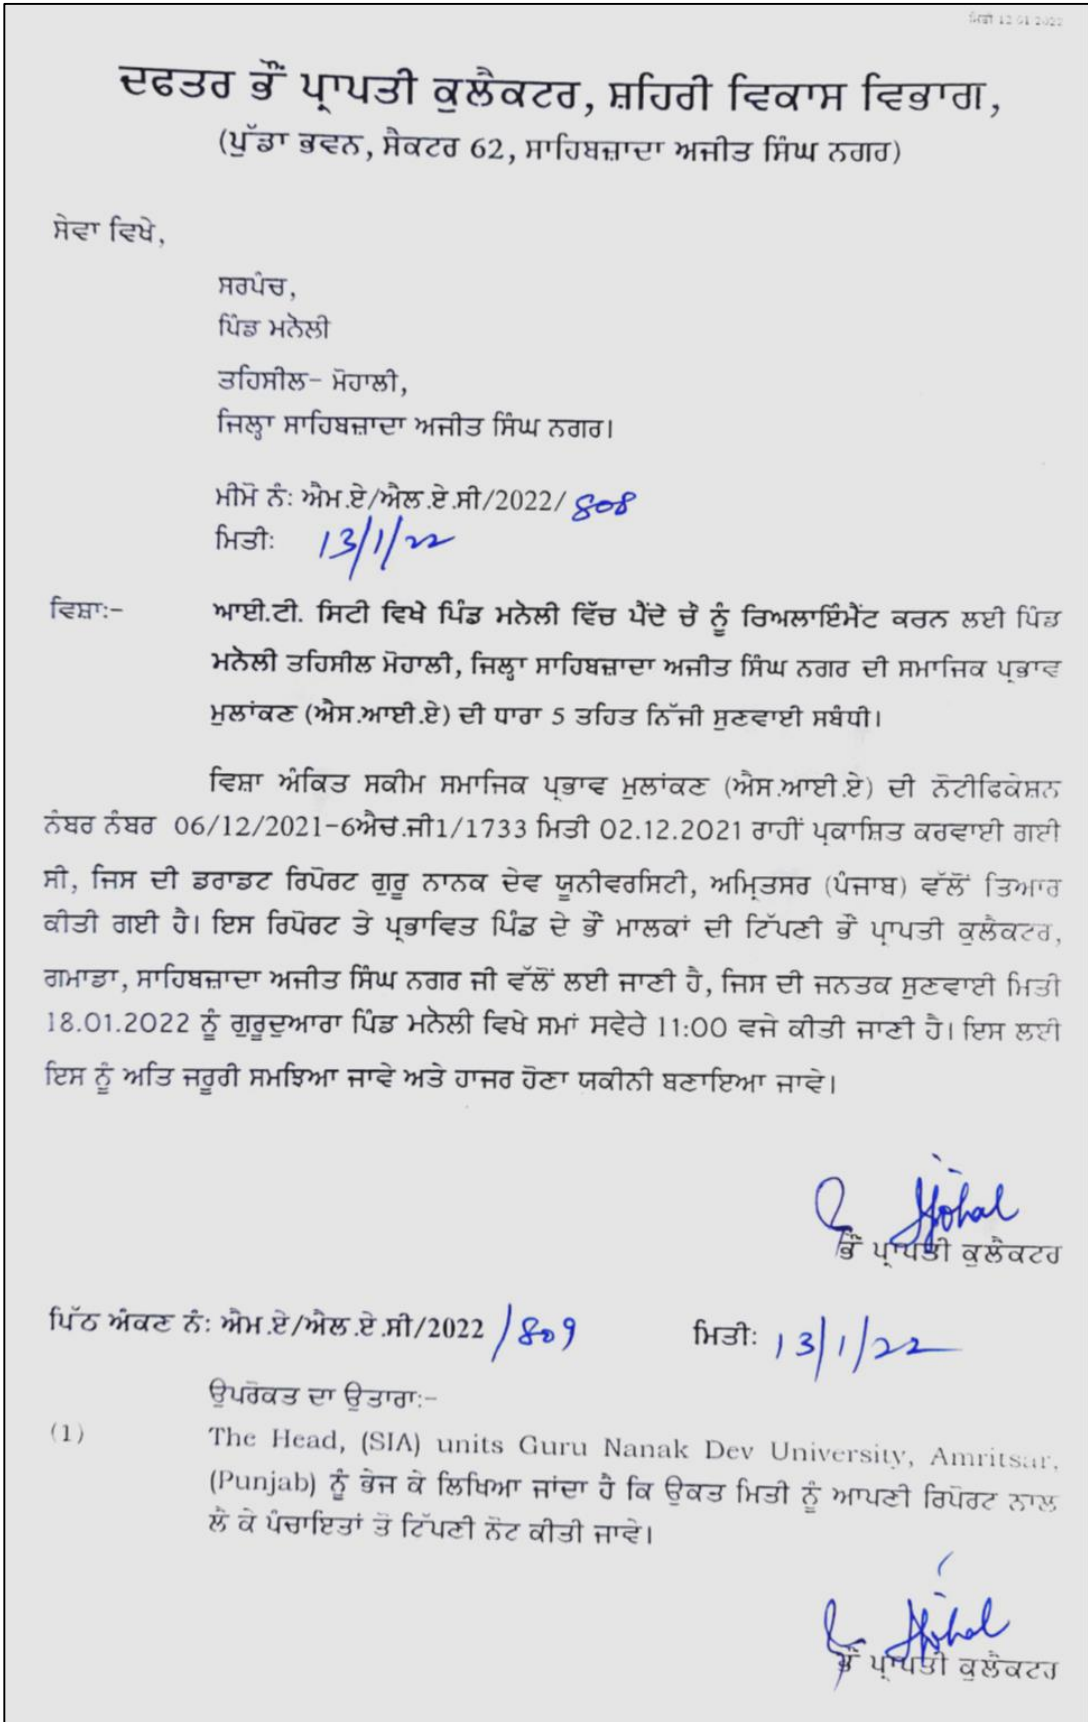 ਮਿਤੀ 12 01 2022
ਦਫਤਰ ਭੌਂ ਪ੍ਰਾਪਤੀ ਕੁਲੈਕਟਰ, ਸ਼ਹਿਰੀ ਵਿਕਾਸ ਵਿਭਾਗ,
(ਪੁੱਡਾ ਭਵਨ, ਸੈਕਟਰ 62, ਸਾਹਿਬਜ਼ਾਦਾ ਅਜੀਤ ਸਿੰਘ ਨਗਰ)
ਸੇਵਾ ਵਿਖੇ,
ਸਰਪੰਚ,
ਪਿੰਡ ਮਨੋਲੀ
ਤਹਿਸੀਲ- ਮੋਹਾਲੀ,
ਜਿਲ੍ਹਾ ਸਾਹਿਬਜ਼ਾਦਾ ਅਜੀਤ ਸਿੰਘ ਨਗਰ।
ਮੀਮੋ ਨੰ: ਐਮ.ਏ/ਐਲ.ਏ.ਸੀ/2022/ 808
ਮਿਤੀ: 13/1/22
ਵਿਸ਼ਾ:- ਆਈ.ਟੀ. ਸਿਟੀ ਵਿਖੇ ਪਿੰਡ ਮਨੋਲੀ ਵਿੱਚ ਪੈਂਦੇ ਚੋਂ ਨੂੰ ਰਿਅਲਾਇੰਮੈਂਟ ਕਰਨ ਲਈ ਪਿੰਡ
ਮਨੋਲੀ ਤਹਿਸੀਲ ਮੋਹਾਲੀ, ਜਿਲ੍ਹਾ ਸਾਹਿਬਜ਼ਾਦਾ ਅਜੀਤ ਸਿੰਘ ਨਗਰ ਦੀ ਸਮਾਜਿਕ ਪ੍ਰਭਾਵ
ਮੁਲਾਂਕਣ (ਐਸ.ਆਈ.ਏ) ਦੀ ਧਾਰਾ 5 ਤਹਿਤ ਨਿੱਜੀ ਸੁਣਵਾਈ ਸਬੰਧੀ।
ਵਿਸ਼ਾ ਅੰਕਿਤ ਸਕੀਮ ਸਮਾਜਿਕ ਪ੍ਰਭਾਵ ਮੁਲਾਂਕਣ (ਐਸ.ਆਈ.ਏ) ਦੀ ਨੋਟੀਫਿਕੇਸ਼ਨ
ਨੰਬਰ ਨੰਬਰ 06/12/2021-6ਐਚ.ਜੀ1/1733 ਮਿਤੀ 02.12.2021 ਰਾਹੀਂ ਪ੍ਰਕਾਸ਼ਿਤ ਕਰਵਾਈ ਗਈ
ਸੀ, ਜਿਸ ਦੀ ਡਰਾਡਟ ਰਿਪੋਰਟ ਗੁਰੂ ਨਾਨਕ ਦੇਵ ਯੂਨੀਵਰਸਿਟੀ, ਅਮ੍ਰਿਤਸਰ (ਪੰਜਾਬ) ਵੱਲੋਂ ਤਿਆਰ
ਕੀਤੀ ਗਈ ਹੈ। ਇਸ ਰਿਪੋਰਟ ਤੇ ਪ੍ਰਭਾਵਿਤ ਪਿੰਡ ਦੇ ਭੌਂ ਮਾਲਕਾਂ ਦੀ ਟਿੱਪਣੀ ਭੌਂ ਪ੍ਰਾਪਤੀ ਕੁਲੈਕਟਰ,
ਗਮਾਡਾ, ਸਾਹਿਬਜ਼ਾਦਾ ਅਜੀਤ ਸਿੰਘ ਨਗਰ ਜੀ ਵੱਲੋਂ ਲਈ ਜਾਣੀ ਹੈ, ਜਿਸ ਦੀ ਜਨਤਕ ਸੁਣਵਾਈ ਮਿਤੀ
18.01.2022 ਨੂੰ ਗੁਰੂਦੁਆਰਾ ਪਿੰਡ ਮਨੋਲੀ ਵਿਖੇ ਸਮਾਂ ਸਵੇਰੇ 11:00 ਵਜੇ ਕੀਤੀ ਜਾਣੀ ਹੈ। ਇਸ ਲਈ
ਇਸ ਨੂੰ ਅਤਿ ਜਰੂਰੀ ਸਮਝਿਆ ਜਾਵੇ ਅਤੇ ਹਾਜਰ ਹੋਣਾ ਯਕੀਨੀ ਬਣਾਇਆ ਜਾਵੇ।
ਭੌਂ ਪ੍ਰਾਪਤੀ ਕੁਲੈਕਟਰ
ਪਿੱਠ ਅੰਕਣ ਨੰ: ਐਮ.ਏ/ਐਲ.ਏ.ਸੀ/2022 /809 ਮਿਤੀ: 13/1/22
ਉਪਰੋਕਤ ਦਾ ਉਤਾਰਾ:-
(1) The Head, (SIA) units Guru Nanak Dev University, Amritsar,
(Punjab) ਨੂੰ ਭੇਜ ਕੇ ਲਿਖਿਆ ਜਾਂਦਾ ਹੈ ਕਿ ਉਕਤ ਮਿਤੀ ਨੂੰ ਆਪਣੀ ਰਿਪੋਰਟ ਨਾਲ
ਲੈ ਕੇ ਪੰਚਾਇਤਾਂ ਤੋਂ ਟਿੱਪਣੀ ਨੋਟ ਕੀਤੀ ਜਾਵੇ।
ਭੌਂ ਪ੍ਰਾਪਤੀ ਕੁਲੈਕਟਰ